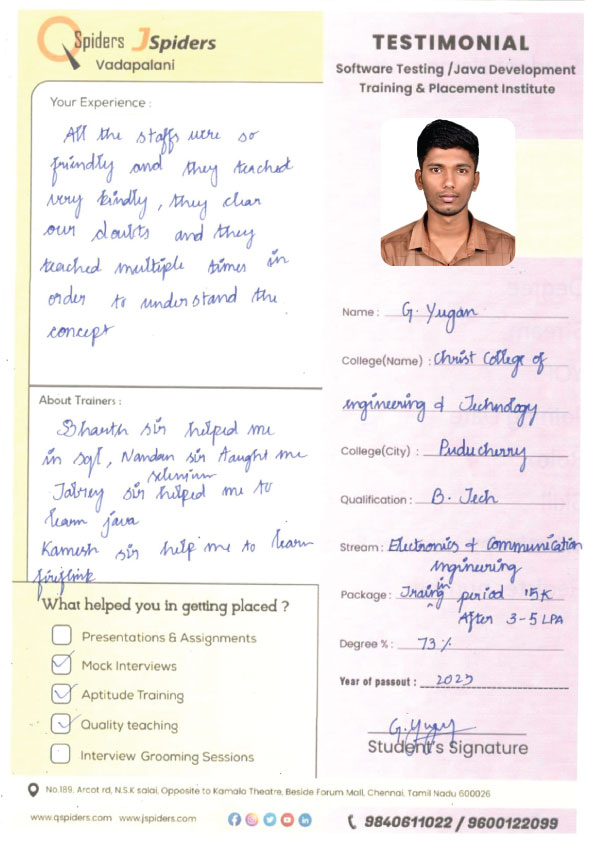 QSpiders JSpiders
Vadapalani
TESTIMONIAL
Software Testing /Java Development
Training & Placement Institute
Your Experience :
All the staffs were so
friendly and they teached
very kindly, they clear
our doubts and they
teached multiple times in
order to understand the
concept
About Trainers :
Bharath sir helped me
in sql, Nandan sir taught me
selenium
sir helped me to
learn java
Kamesh sir help me to learn
fireflink
What helped you in getting placed ?
Presentations & Assignments
Mock Interviews
Aptitude Training
Quality teaching
Interview Grooming Sessions
Name : G. Yugan
College(Name) : Christ College of
engineering & Technology
College(City) : Puducherry
Qualification : B. Tech
Stream : Electronics & Communication
engineering
Package : Training period 15K
After 3-5 LPA
Degree % : 73 %
Year of passout : 2023
G. Yugan
Student's Signature
No.189, Arcot rd, N.S.K salai, Opposite to Kamala Theatre, Beside Forum Mall, Chennai, Tamil Nadu 600026
www.qspiders.com www.jspiders.com
9840611022 / 9600122099